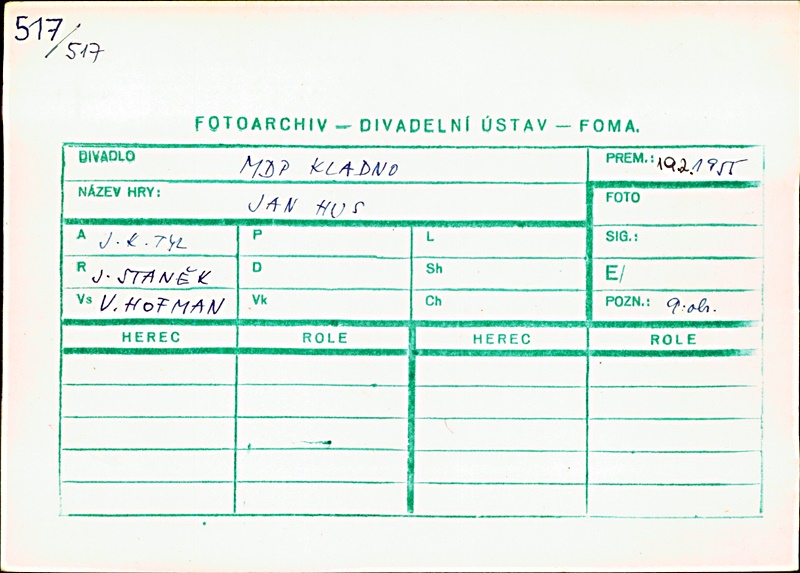 517/517
FOTOARCHIV — DIVADELNÍ ÚSTAV — FOMA.
DIVADLO MDP KLADNO PREM.: 19.2.1955
NÁZEV HRY: JAN HUS FOTO
A J.K.TYL P L SIG.:
R J. STANĚK D Sh E/
Vs V. HOFMAN Vk Ch POZN.: 9.obr.
HEREC ROLE HEREC ROLE